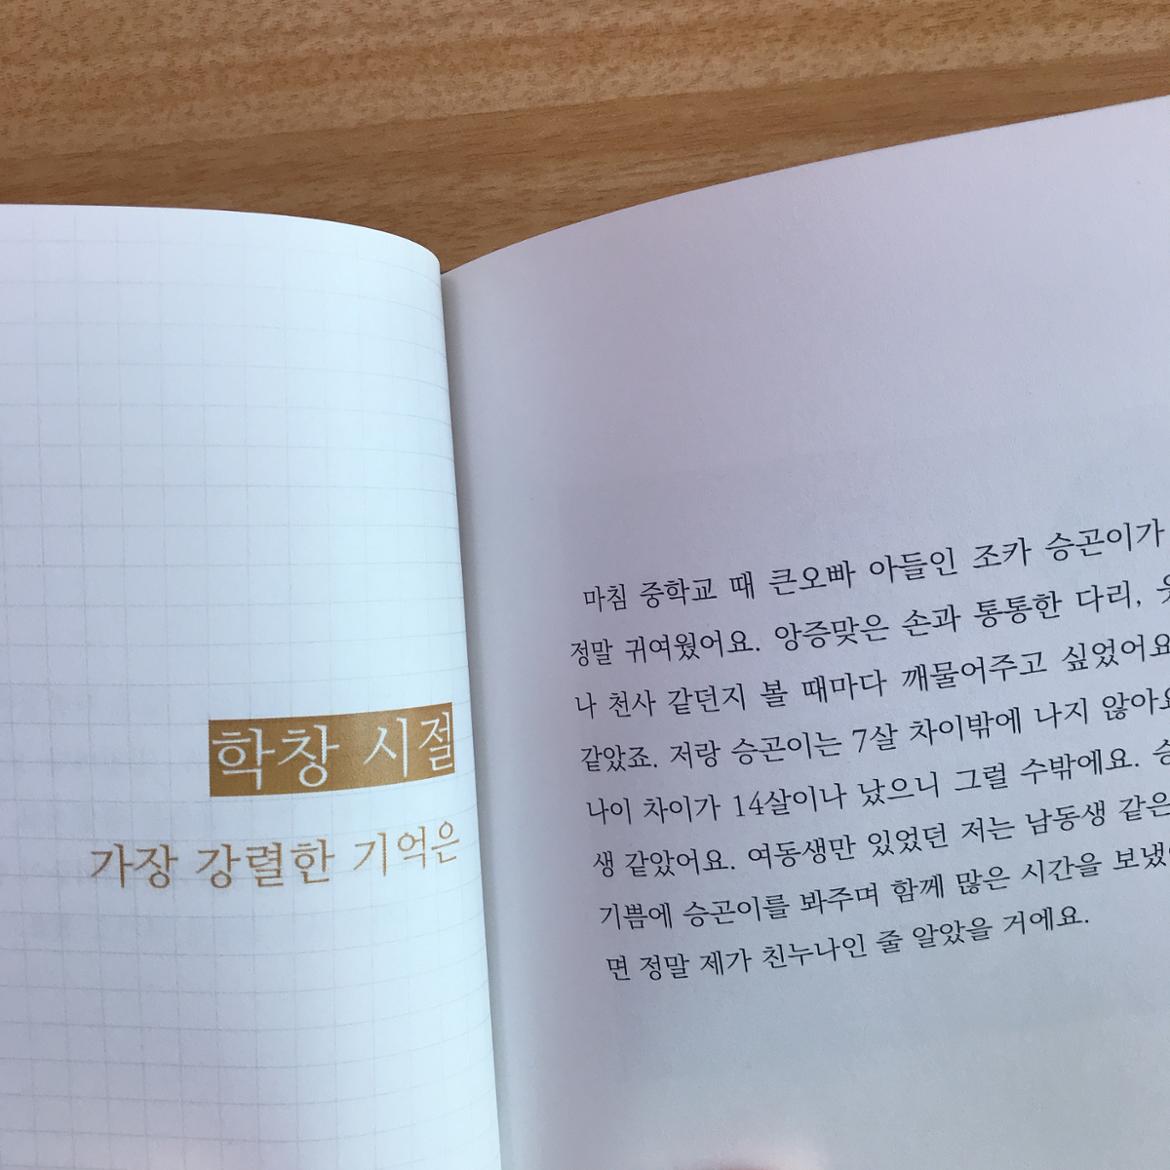 학창 시절
가장 강렬한 기억은
마침 중학교 때 큰오빠 아들인 조카 승곤이가
정말 귀여웠어요. 앙증맞은 손과 통통한 다리,
나 천사 같던지 볼 때마다 깨물어주고 싶었어요
같았죠. 저랑 승곤이는 7살 차이밖에 나지 않아요
나이 차이가 14살이나 났으니 그럴 수밖에요.
생 같았어요. 여동생만 있었던 저는 남동생 같은
기쁨에 승곤이를 봐주며 함께 많은 시간을 보냈
면 정말 제가 친누나인 줄 알았을 거에요.